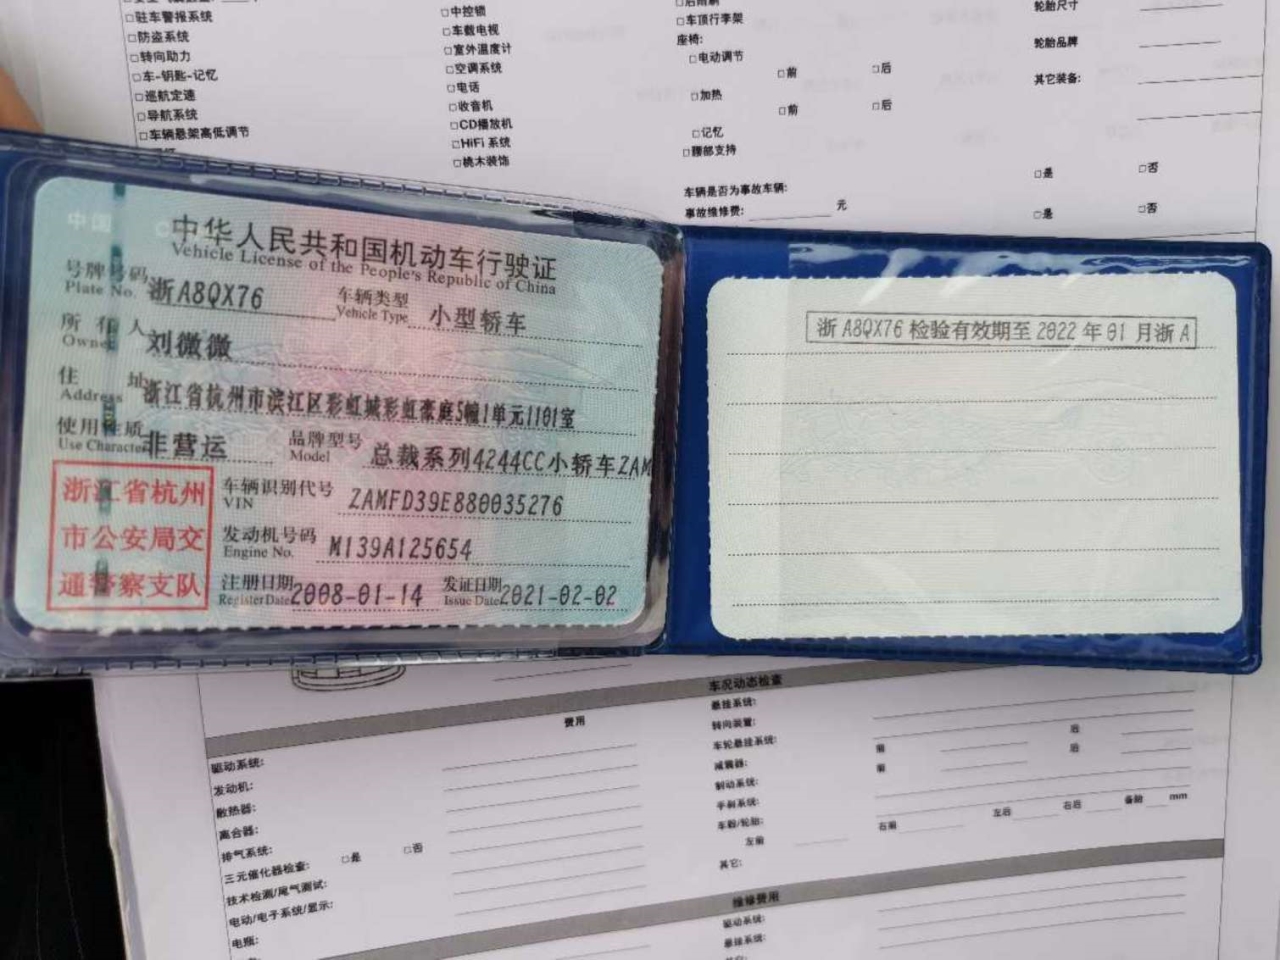 □驻车警报系统
□防盗系统
□转向助力
□车-钥匙-记忆
□巡航定速
□导航系统
□车辆悬架高低调节
□中控锁
□车载电视
□室外温度计
□空调系统
□电话
□收音机
□CD播放机
□HiFi 系统
□桃木装饰
□后雨刷
□车顶行李架
座椅:
□电动调节
□前 □后
□加热
□前 □后
□记忆
□腰部支持
车辆是否为事故车辆: □是 □否
事故维修费: 元 □是 □否
轮胎尺寸
轮胎品牌
其它装备:
中华人民共和国机动车行驶证
Vehicle License of the People's Republic of China
号牌号码 浙A8QX76 车辆类型 小型轿车
Plate No. Vehicle Type
所有人 刘微微
Owner
住址 浙江省杭州市滨江区彩虹城彩虹豪庭5幢1单元1101室
Address
使用性质 非营运 品牌型号 总裁系列4244CC小轿车ZAM
Use Character Model
浙江省杭州
市公安局交
通警察支队
车辆识别代号 ZAMFD39E880035276
VIN
发动机号码 M139A125654
Engine No.
注册日期 2008-01-14 发证日期 2021-02-02
Register Date Issue Date
浙A8QX76检验有效期至2022年01月浙A
车况动态检查
费用
驱动系统:
发动机:
散热器:
离合器:
排气系统:
三元催化器检查: □是 □否
技术检测/尾气测试:
电动/电子系统/显示:
电瓶:
悬挂系统:
转向装置:
车轮悬挂系统: 前 后
减震器: 前 后
制动系统:
手刹系统:
车毂/轮胎:
左前 右前 左后 右后 备胎 mm
其它:
维修费用
驱动系统:
悬挂系统: